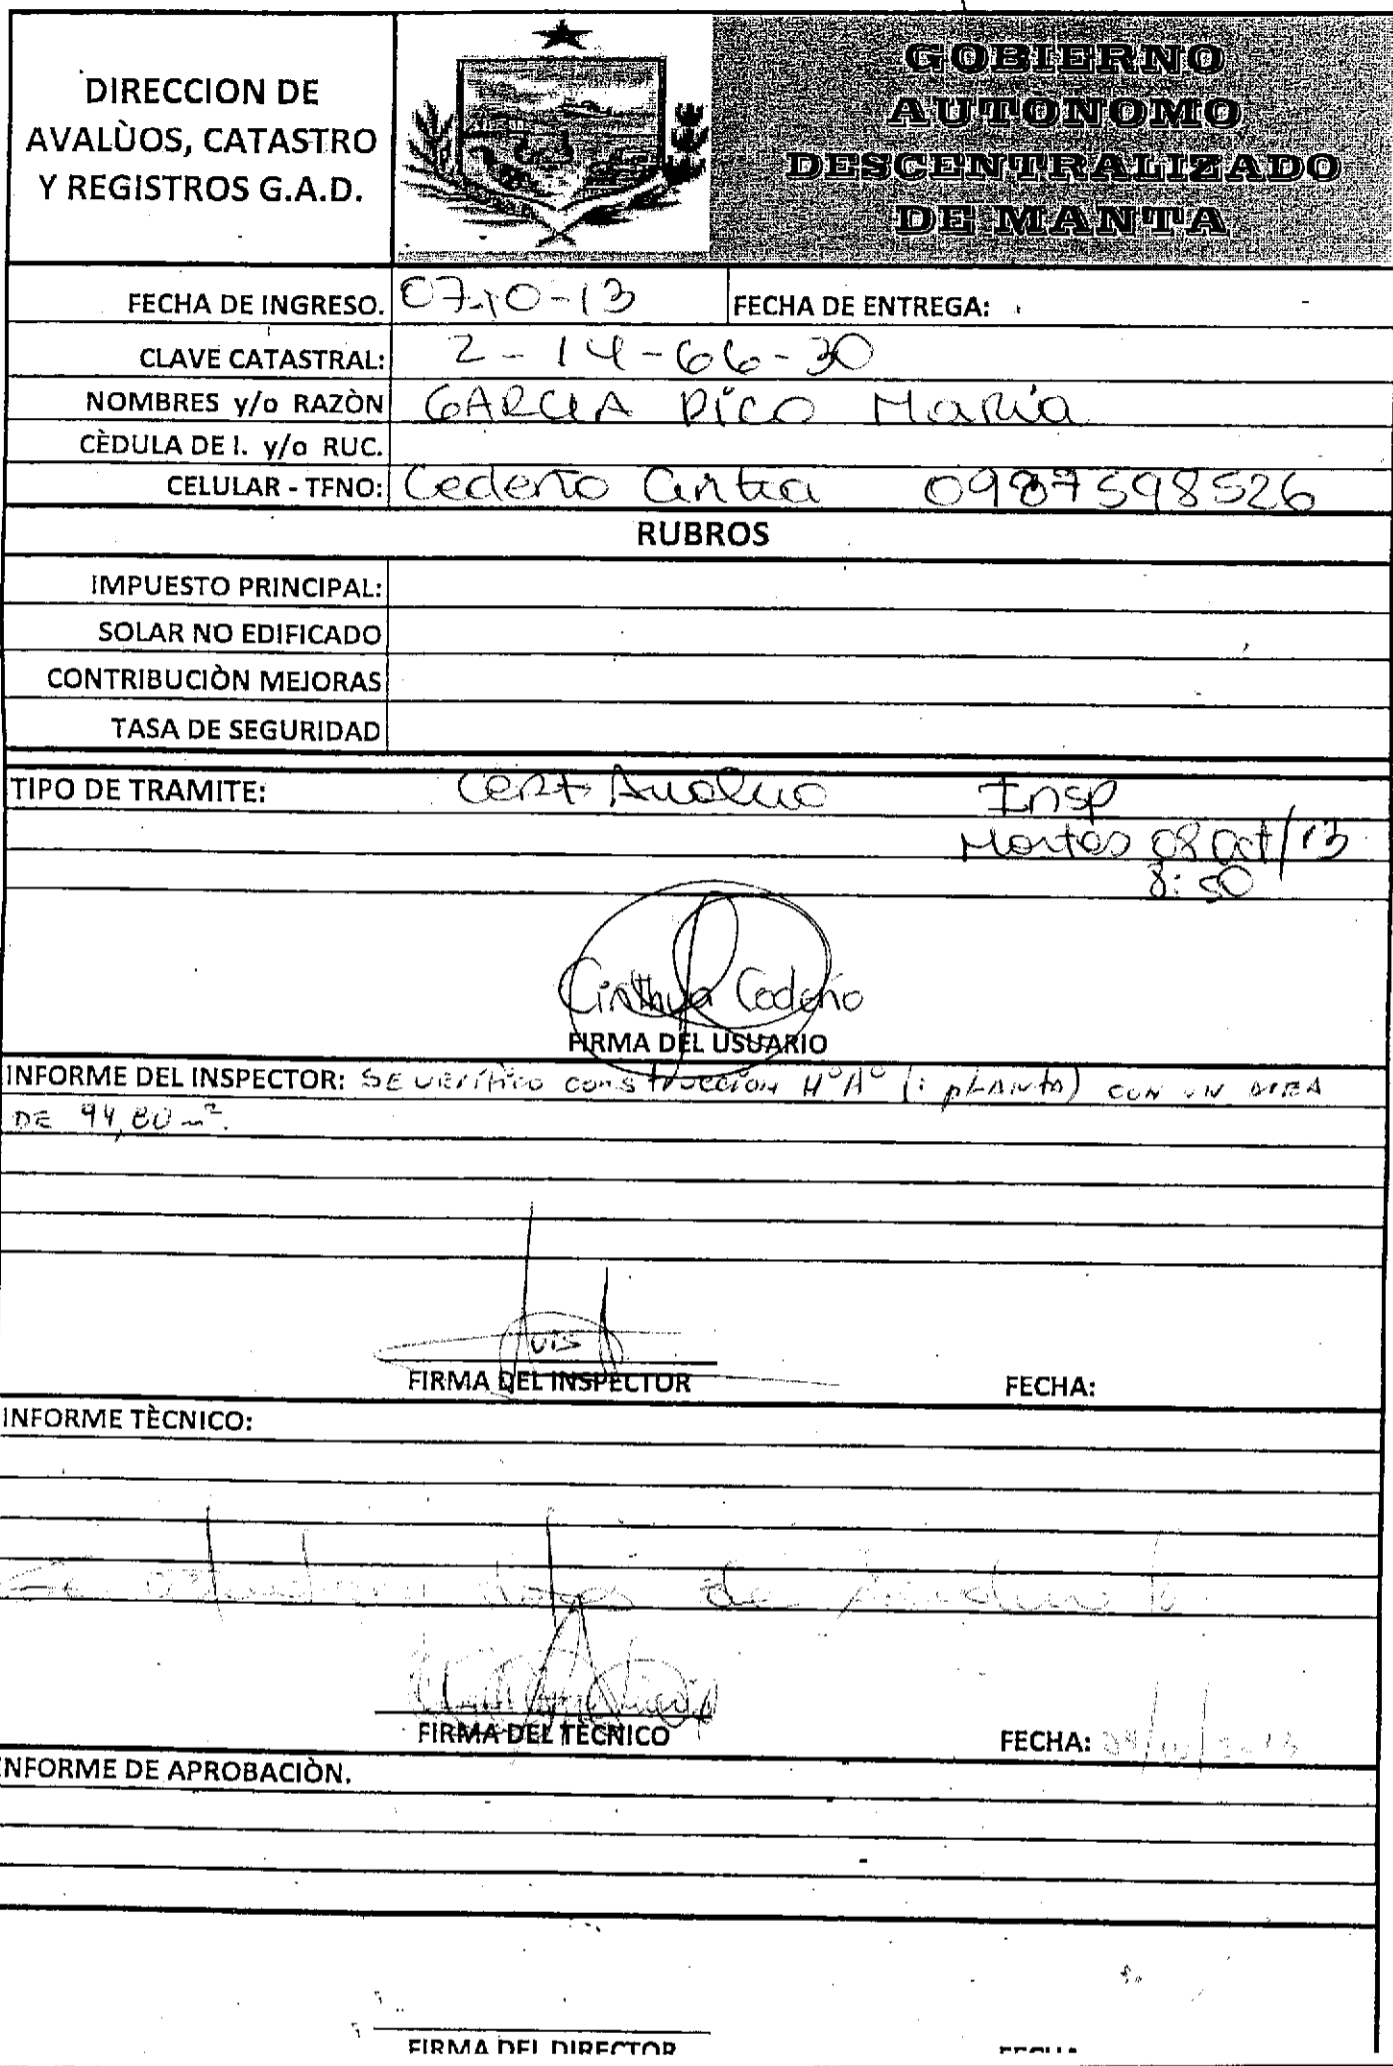 DIRECCION DE
AVALÙOS, CATASTRO
Y REGISTROS G.A.D.
GOBIERNO
AUTÒNOMO
DESCENTRALIZADO
DE MANTA
FECHA DE INGRESO. 07-10-13 FECHA DE ENTREGA:
CLAVE CATASTRAL: 2-14-66-30
NOMBRES y/o RAZÒN GARCIA PICO María
CÈDULA DE I. y/o RUC.
CELULAR - TFNO: Cedeño Cintia 0987598526
RUBROS
IMPUESTO PRINCIPAL:
SOLAR NO EDIFICADO
CONTRIBUCIÒN MEJORAS
TASA DE SEGURIDAD
TIPO DE TRAMITE: Cert Avaluo Insp
Martes 08 Oct/13
8:50
Cinthya Cedeño
FIRMA DEL USUARIO
INFORME DEL INSPECTOR: SE VERIFICO CONSTRUCCION HºAº (1 PLANTA) CON UN AREA
DE 94,80 m².
FIRMA DEL INSPECTOR FECHA:
INFORME TÈCNICO:
Se de
FIRMA DEL TÈCNICO FECHA:
INFORME DE APROBACIÒN.
FIRMA DEL DIRECTOR FECHA